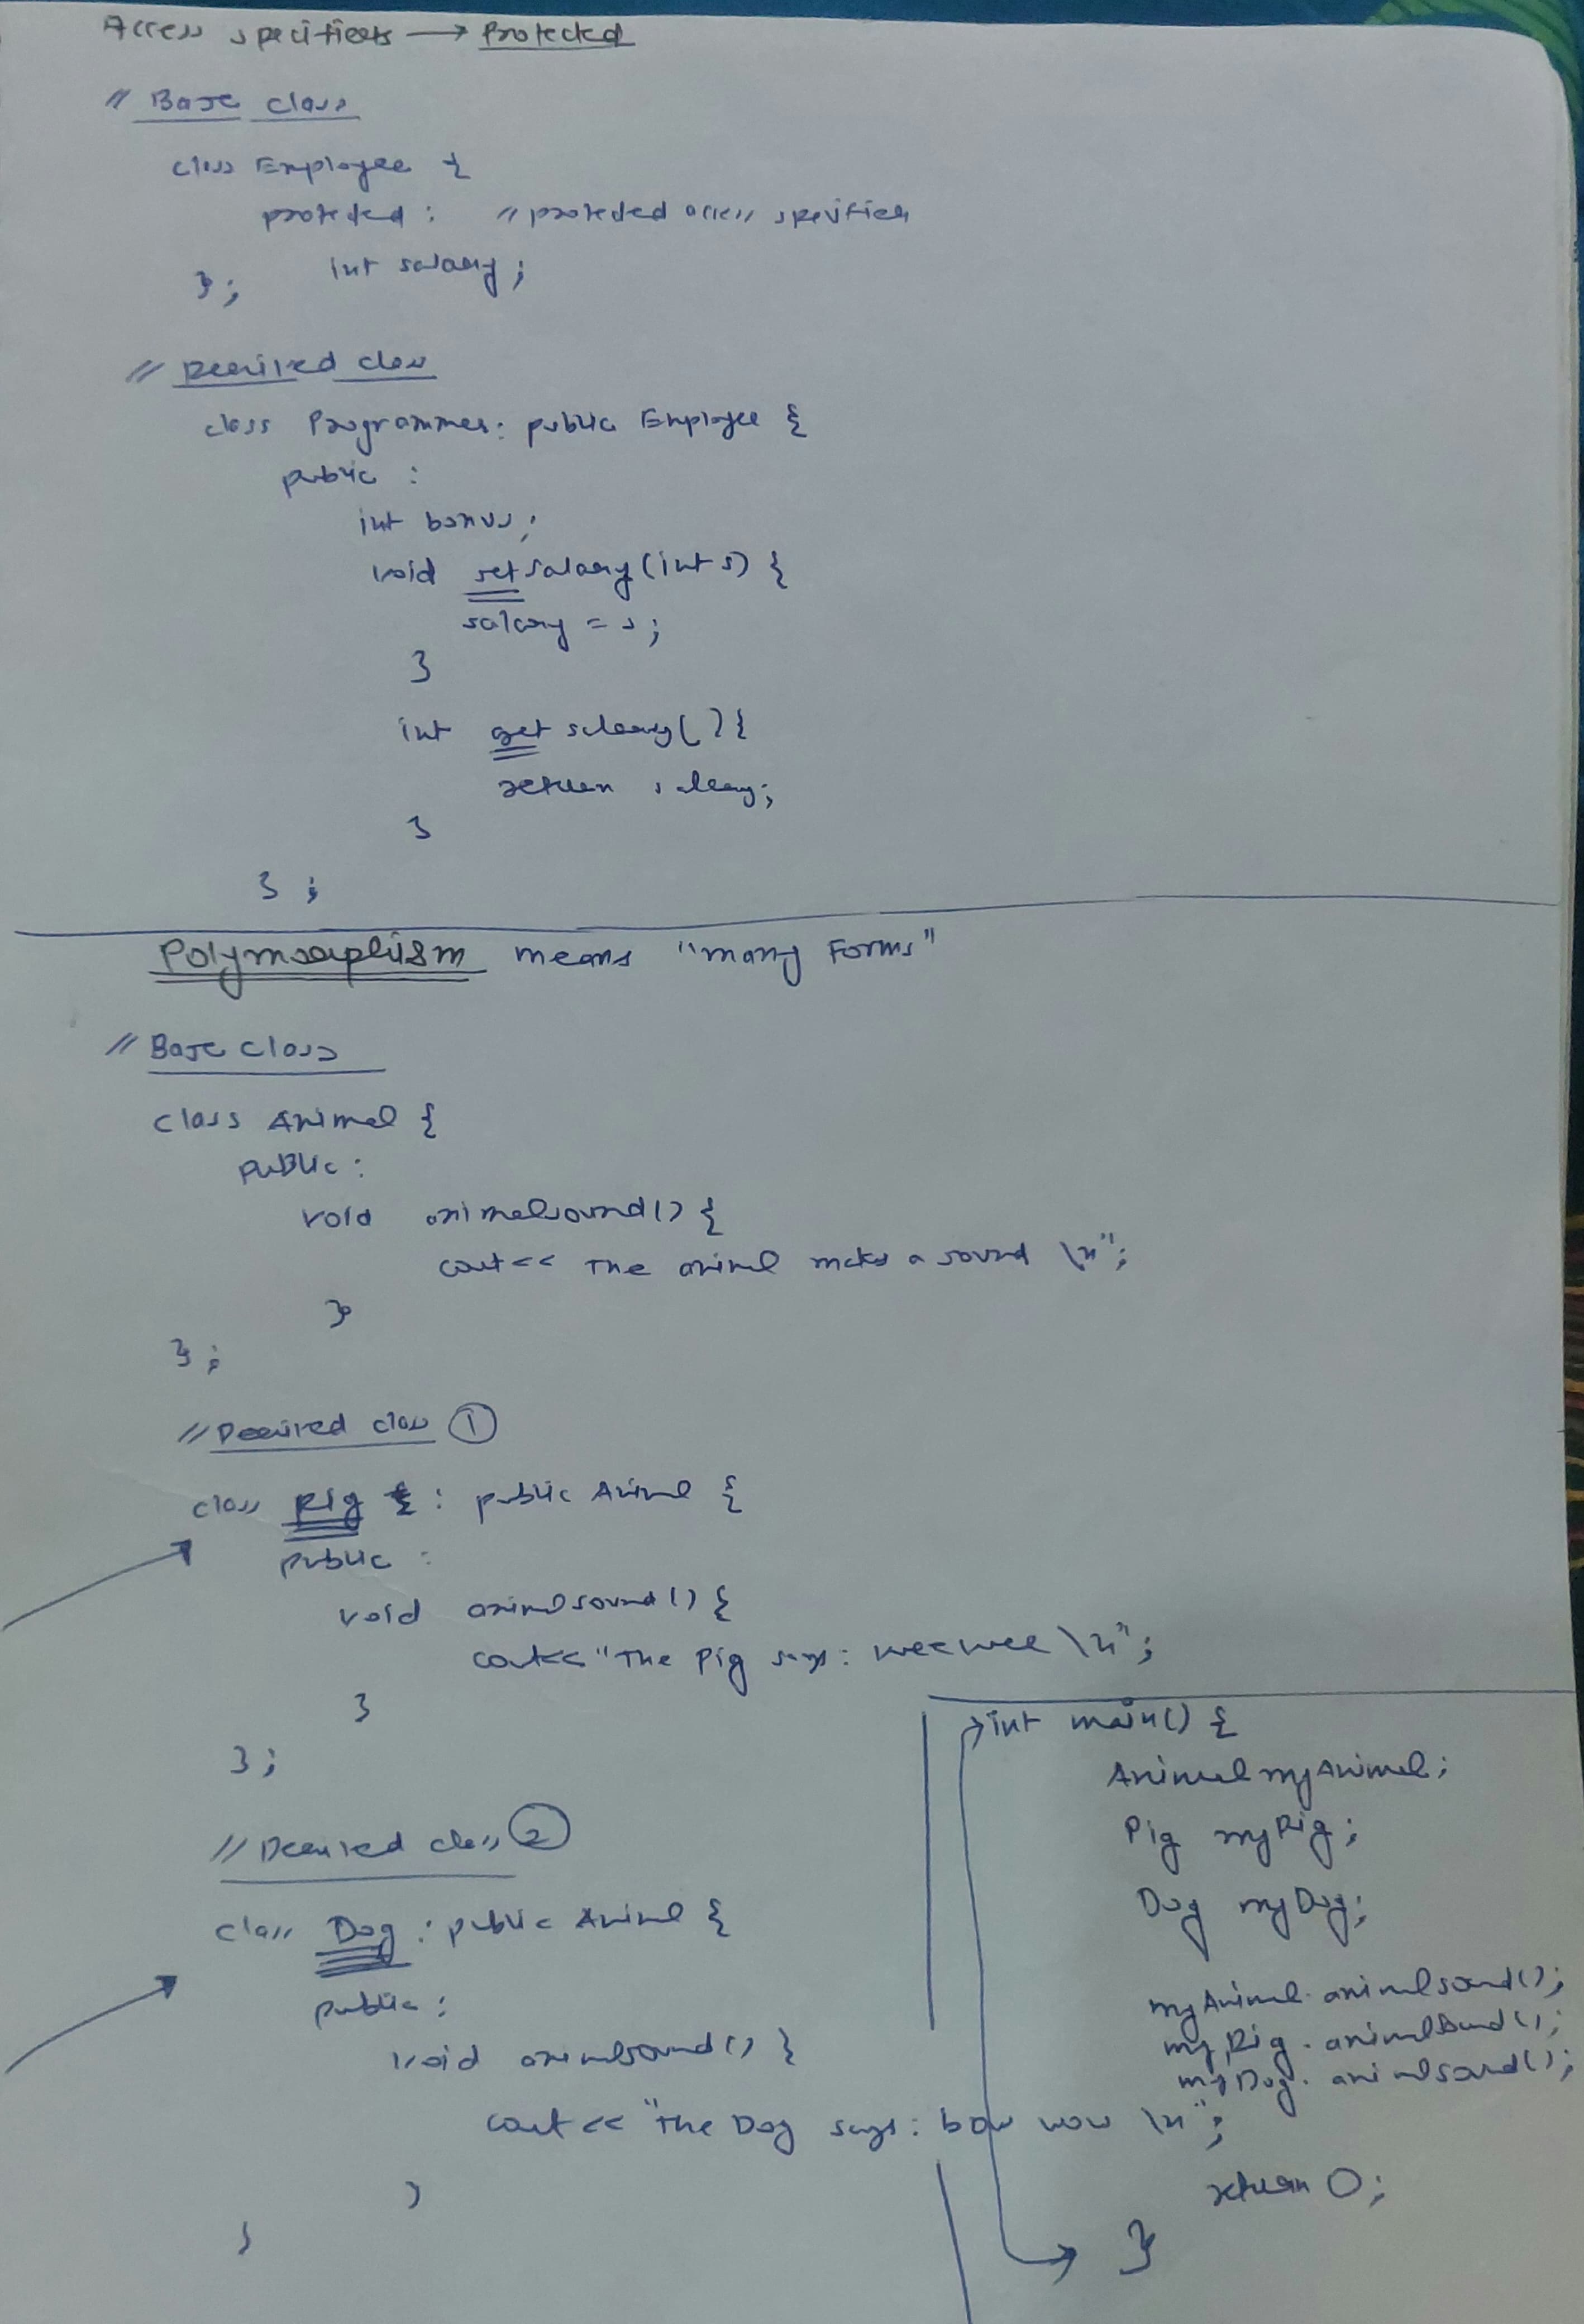 Access specifiers → Protected
// Base class
class Employee {
protected : // protected access specifier
int salary ;
};
// Derived class
class Programmer: public Employee {
public :
int bonus;
void setsalary(int s) {
salary = s;
}
int getsalary() {
return salary;
}
};
Polymorphism means "many Forms"
// Base class
class Animal {
public :
void animalsound() {
cout << The animal makes a sound \n";
}
};
// Derived class ①
class Pig : public Animal {
public :
void animalsound() {
cout<< "The Pig says: wee wee \n";
}
};
// Derived class ②
class Dog : public Animal {
public :
void animalsound() {
cout << "The Dog says : bow wow \n";
}
}
int main() {
Animal myAnimal;
Pig myPig;
Dog myDog;
myAnimal.animalsound();
myPig.animalsound();
myDog.animalsound();
return 0;
}